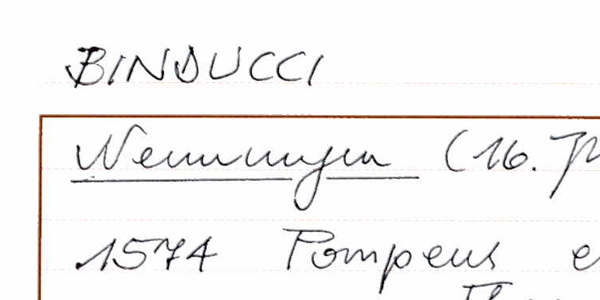 BINDUCCI
Nennungen (16. Jh
1574 Pompeus e